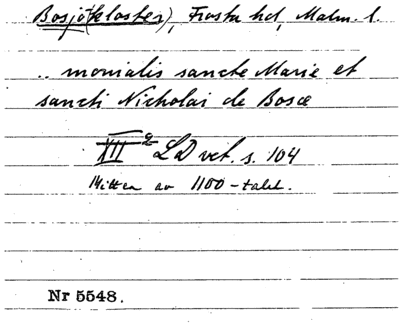 Bosjö(kloster), Frosta hd, Malm. l.
.. monialis sancte Marie et
sancti Nicholai de Bosœ
XII 2 LD vet. s. 104
Mitten av 1100-talet.
Nr 5548.